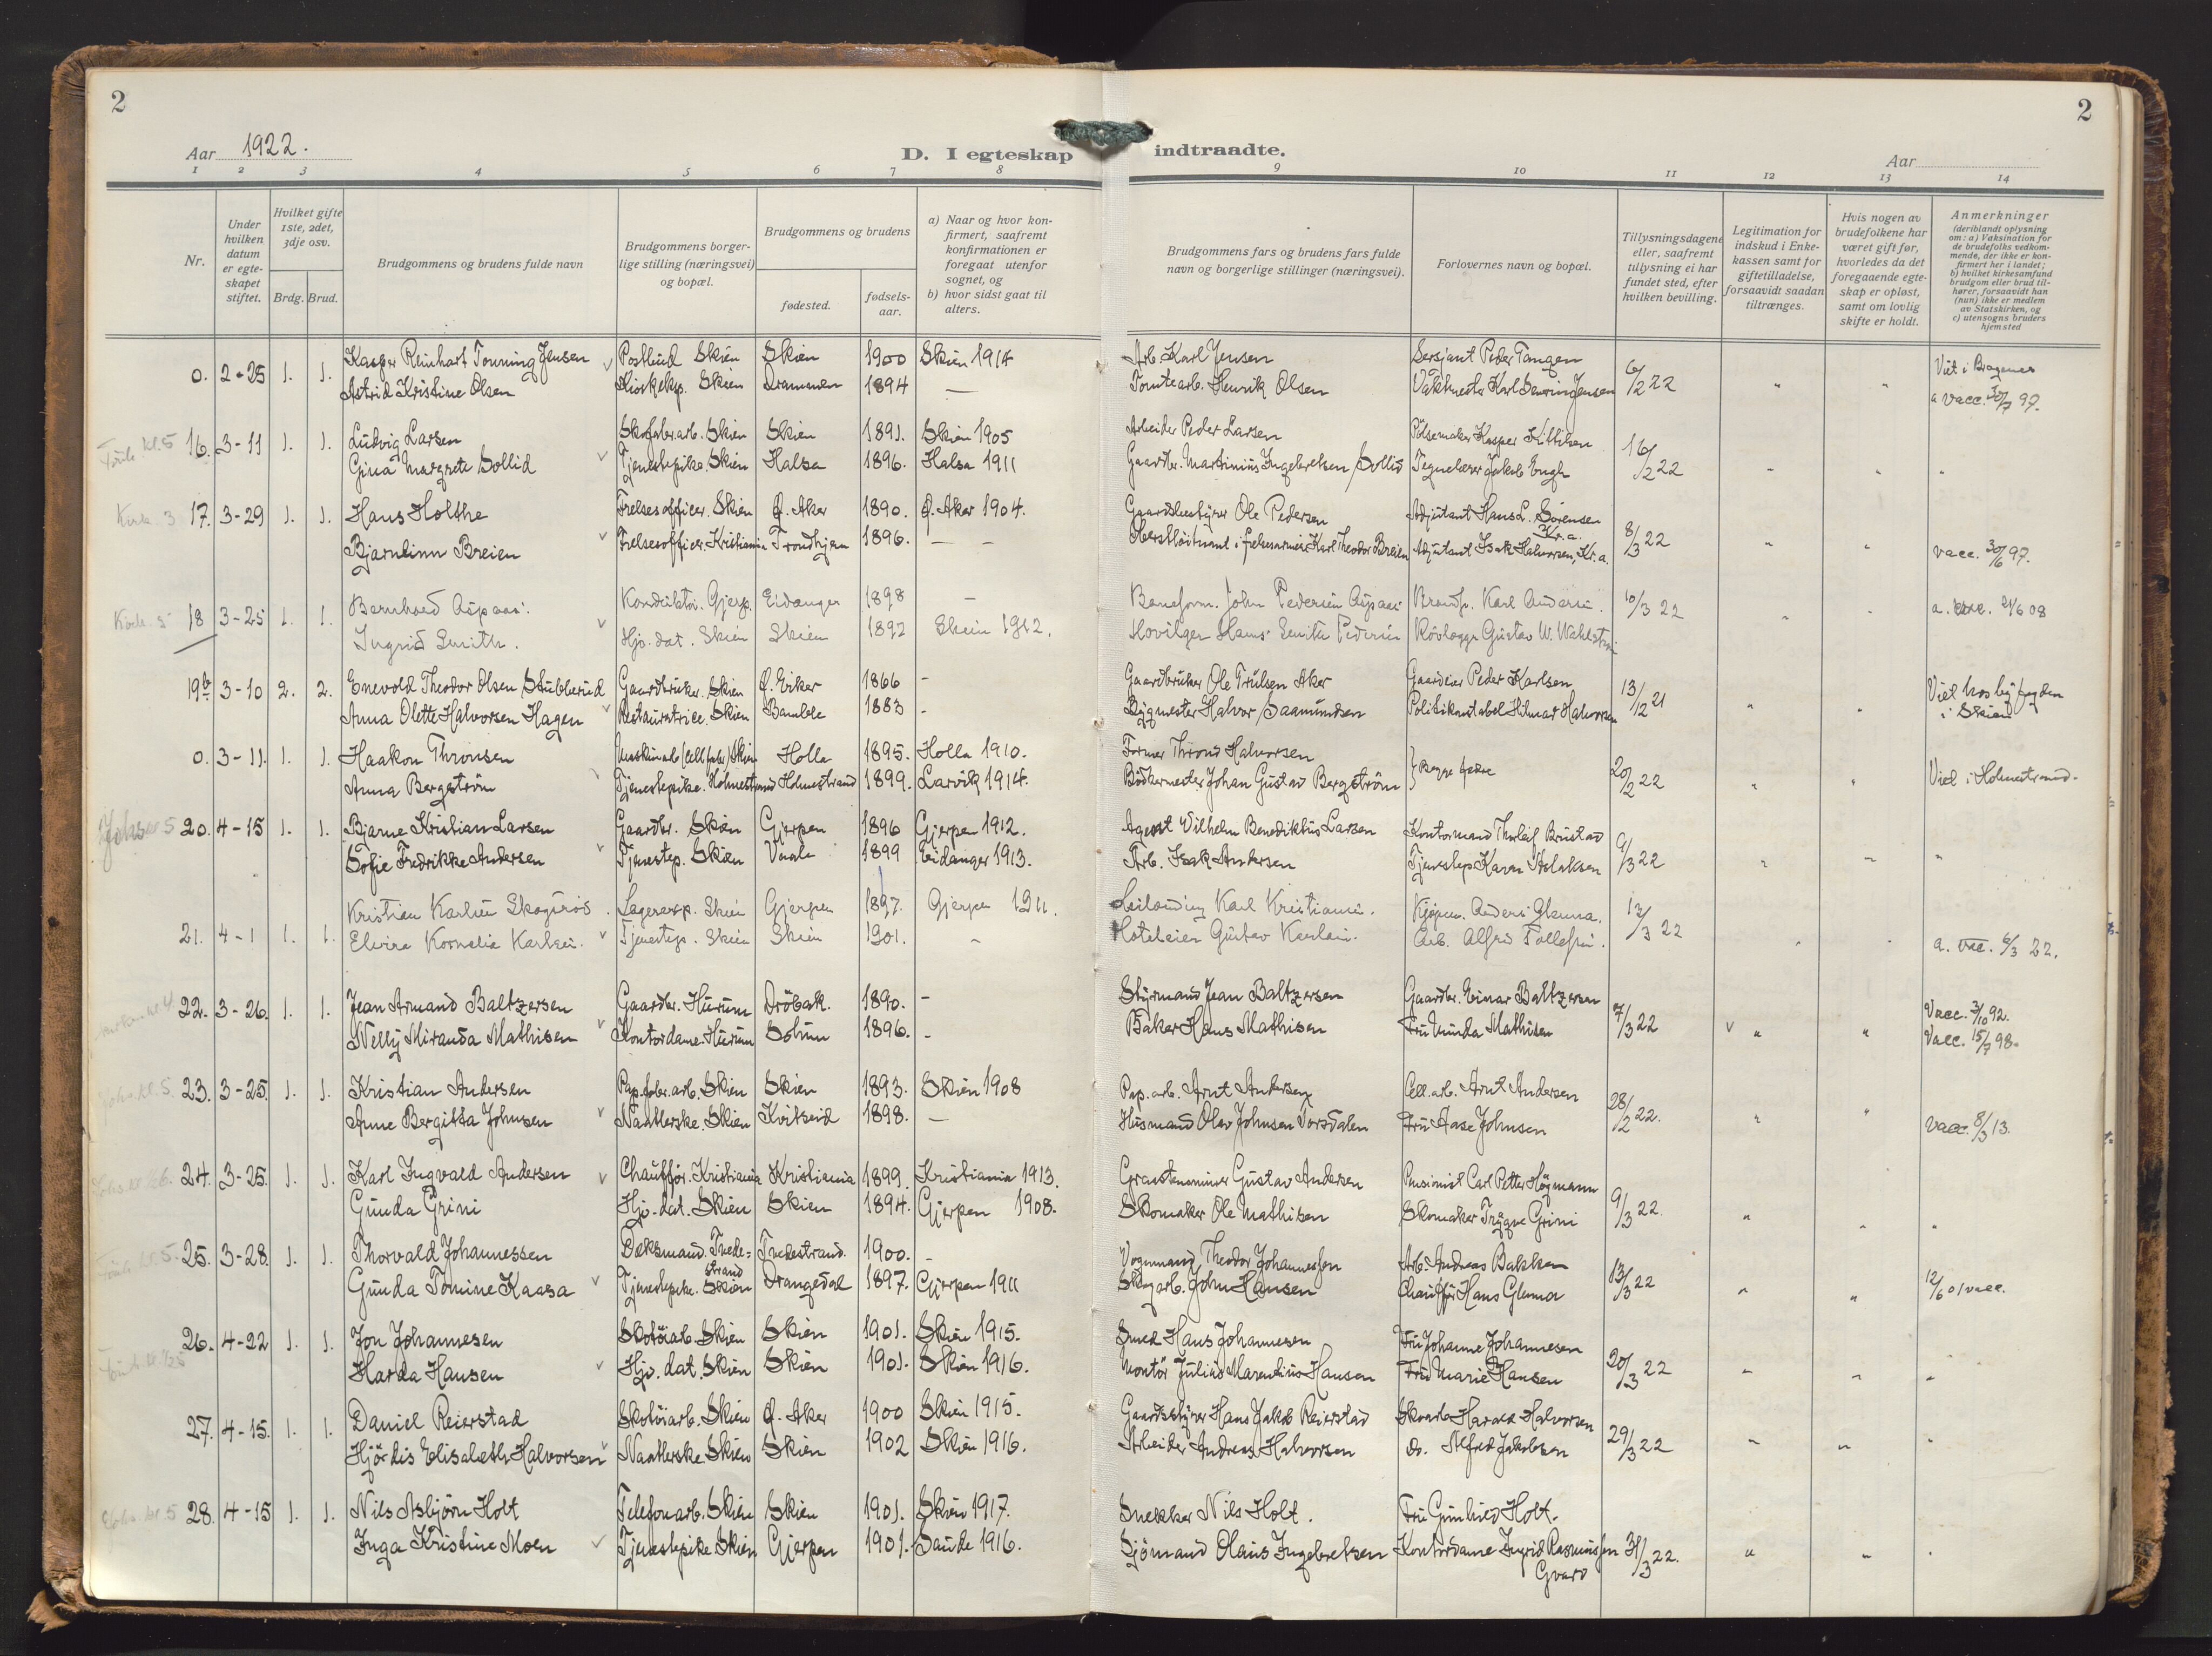 2
2
Aar 1922.
D. I egteskap indtraadte.
Aar
1 2 3 4 5 6 7 8 9 10 11 12 13 14
Nr.
Under hvilken datum er egteskapet stiftet.
Hvilket gifte 1ste, 2det, 3dje osv.
Brdg. Brud.
Brudgommens og brudens fulde navn
Brudgommens borgerlige stilling (næringsvei) og bopæl.
Brudgommens og brudens
fødested.
fødselsaar.
a) Naar og hvor konfirmert, saafremt konfirmationen er foregaat utenfor sognet, og
b) hvor sidst gaat til alters.
Brudgommens fars og brudens fars fulde navn og borgerlige stillinger (næringsvei).
Forlovernes navn og bopæl.
Tillysningsdagene eller, saafremt tillysning ei har fundet sted, efter hvilken bevilling.
Legitimation for indskud i Enkekassen samt for giftetilladelse, forsaavidt saadan tiltrænges.
Hvis nogen av brudefolkene har været gift før, hvorledes da det foregaaende egteskap er opløst, samt om lovlig skifte er holdt.
Anmerkninger
(deriblandt oplysning om: a) Vaksination for de brudefolks vedkommende, der ikke er konfirmert her i landet; b) hvilket kirkesamfund brudgom eller brud tilhører, forsaavidt han (hun) ikke er medlem av Statskirken, og c) utensogns bruders hjemsted
0. 2-25 1. 1. Kasper Reinhart Tonning Jensen Postbud Skien Skien 1900 Skien 1914 Arb. Karl Jensen Sersjant Peder Tangen 6/2 22 " " Viet i Bragenes
Astrid Kristine Olsen Kioskeksp. Skien Drammen 1894 — Tomtearb. Henrik Olsen Vaktmester Karl Jensen a vacc. 30/7 97.
kl. 5 16. 3-11 1. 1. Ludvig Larsen Skofabr.arb. Skien Skien 1891. Skien 1905 Arbeider Peder Larsen Pölsemaker Kasper Kittilsen 16/2 22 " " "
Gina Margrete Sollid Tjenestepike. Skien Halsa 1896. Halsa 1911 Gaardbr. Martinius Ingebretsen Sollid Tegnelærer Jakob Engh
Kirk. 3 17. 3-29 1. 1. Hans Holthe Frelsesofficer. Skien Ø. Aker 1890. Ø. Aker 1904. Gaardsbestyrer Ole Pedersen Adjutant Hans L. Sörensen Kr.a. 8/3 22 " "
Bjarnlinn Breien Frelsesofficer. Kristiania Trondhjem 1896. — — Oberstlöitnant i frelsesarmeen Karl Theodor Breien Adjutant Isak Halvorsen, Kr.a. vacc. 30/6 97.
Kirk. 5 18 3-25 1. 1. Bernhard Aspaas. Konduktör. Gjerp. Eidanger 1898 — Baneform. John Pedersen Aspaas Brandk. Karl Andersen. 10/3 22 " " a. vacc. 21/6 08
Ingrid Smith. Hj. dat. Skien Skien 1892 Skien 1912. Hans Smith Pedersen Gustav W.
19b 3-10 2. 2. Enevold Theodor Olsen Stubberud Gaardbruker. Skien Ø. Eiker 1866 - Gaardbruker Ole Trulsen Aker Gaardeier Peder Karlsen 13/12 21 " " Viet hos byfogden i Skien
Anna Olette Halvorsen Hagen Restauratrice. Skien Bamble 1883 - Bygmester Halvor Saamundsen Politikonstabel Hilmar Halvorsen
0. 3-11. 1. 1. Haakon Thronsen Maskinarb (Cell.fabr.) Skien Holla 1895. Holla 1910. Former Thrond Halvorsen } Begge fædre 20/2 22 " " Viet i Holmestrand.
Anna Bergström Tjenestepike. Holmestrand Holmestrand 1899. Larvik 1914. Bödkermester Johan Gustav Bergström
Johs. 5 20. 4-15 1. 1. Bjarne Kristian Larsen Gaardbr. Skien Gjerpen 1896 Gjerpen 1912. Agent Vilhelm Benediktus Larsen Kontormand Thorleif Brustad 9/3 22 " " "
Sofie Fredrikke Andersen Tjenestep. Skien Vaale 1899 Eidanger 1913. Arb. Isak Andersen Tjenestep Karen Aslaksen
21. 4-1 1. 1. Kristian Karlsen Skogsrös. Lagereksp. Skien Gjerpen 1897. Gjerpen 1911. Leilænding Karl Kristiansen. Kjöpm. Anders Glenna. 13/3 22 " "
Elvira Kornelia Karlsen. Tjenestep. Skien Skien 1901. - Hoteleier Gustav Karlsen. Arb. Alfred Tollefsen. a. vac. 6/3 22.
22. 3-26. 1. 1. Jean Armand Baltzersen Gaardbr. Hurum Dröbak. 1890. - Styrmand Jean Baltzersen Gaardbr. Einar Baltzersen 7/3 22 v " " Vacc. 3/10 92.
Nelly Miranda Mathisen Kontordame. Hurum Solum 1896. - Baker Hans Mathisen Fru Nunda Mathisen Vacc. 15/7 98.
kl. 5. 23. 3-25. 1. 1. Kristian Andersen Pap.fabr.arb. Skien Skien 1893. Skien 1908 Pap.arb. Arnt Andersen Cell.arb. Arnt Andersen 28/2 22. " "
Anne Bergitta Johnsen Naatlerske. Skien Kvitseid 1898. — Husmand Olav Johnsen Vorsdalen Fru Aase Johnsen vacc. 8/3 13.
24. 3-25. 1. 1. Karl Ingvald Andersen Chauffør. Kristiania Kristiania 1899. Kristiania 1913. Graastensminer Gustav Andersen Pensionist Carl Petter Högmann 9/3 22. " " "
Gunda Grini Hjv. dat. Skien Skien 1894. Gjerpen 1908. Skomaker Ole Mathisen Skomaker Trygve Grini
kl. 5. 25. 3-28. 1. 1. Thorvald Johannessen Dæksmand. Tvedestrand Tvedestrand. 1900. - Vognmand, Theodor Johannessen Arb. Andreas Bakken 13/3 22 " " 12/6 01 vacc.
Gunda Tomine Kaasa Tjenestepike. Skien Drangedal 1897. Gjerpen 1911 Skogarb. John Hansen Chauffør Hans Glenna
26. 4-22 1. 1. Jon Johannesen Skotöiarb. Skien Skien 1901. Skien 1915. Smed Hans Johannesen Fru Johanne Johannesen 20/3 22 " " "
Harda Hansen Hjv. dat. Skien Skien 1901. Skien 1916. Montör Julius Marendius Hansen Fru Marie Hansen
27. 4-15. 1. 1. Daniel Reierstad Skotöiarb. Skien Ø. Aker 1900 Skien 1915. Gaardsstyrer Hans Jakob Reierstad Skoarb Harald Halvorsen 29/3 22 " " "
Hjördis Elisabeth Halvorsen Naatlerske Skien Skien 1902 Skien 1916. Arbeider Andreas Halvorsen do. Alfred Jakobsen
kl. 5 28. 4-15 1. 1. Nils Asbjörn Holt Telefonarb. Skien Skien 1901. Skien 1917. Snekker Nils Holt. Fru Gunhild Holt. 31/3 22. " " "
Inga Kristine Moen Tjenestepike Skien Gjerpen 1901. Saude 1916. Sjömand Olaus Ingebretsen Kontordame Ingrid Rasmussen Gvard